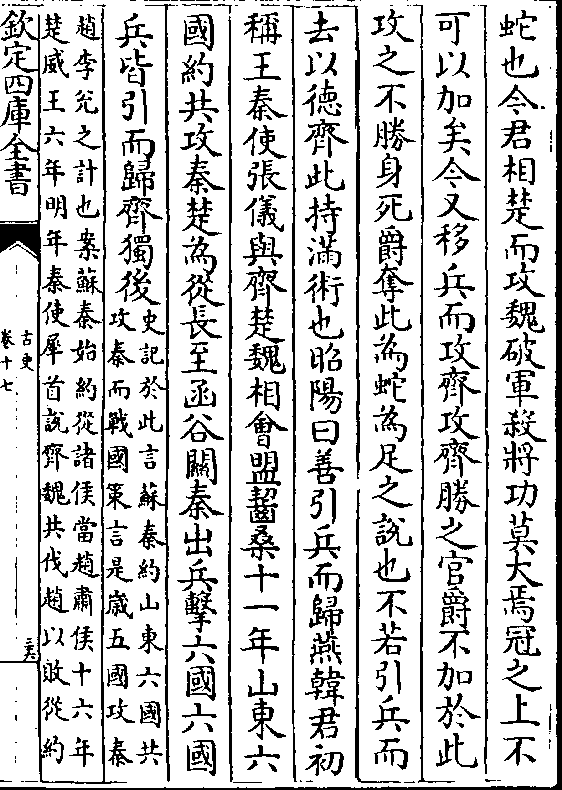 蛇也今君相楚而攻魏破軍殺將功莫大焉冠之上不
可以加矣今又移兵而攻齊攻齊勝之官爵不加於此
攻之不勝身死爵奪此為蛇為足之說也不若引兵而
去以德齊此持滿術也昭陽曰善引兵而歸燕韓君初
稱王秦使張儀與齊楚魏相會盟齧桑十一年山東六
國約共攻秦楚為從長至函谷關秦出兵擊六國六國
兵皆引而歸齊獨後
史記於此言蘇秦約山東六國共
攻秦而戰國策言是嵗五國攻秦
趙李兊之計也案蘇秦始約從諸侯當趙肅侯十六年
楚威王六年明年秦使犀首說齊魏共伐趙以敗從約
欽定四庫全書
古史
卷十七